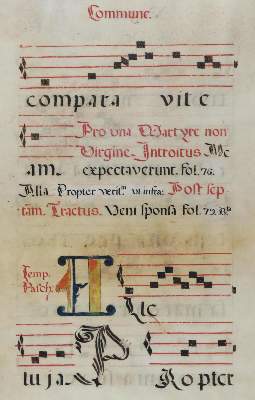 Commune.
compara vit e
Pro una Martyre non
Virgine. Introitus. Me
am. expectaverunt. fol. 76.
Alla. Propter verit.m ut infra. Post sep-
tam. Tractus. Veni sponsa fol. 72.
Temp.
Pasch.
A lle
lu ja. P Ropter